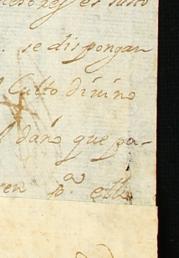 es justo
se dispongan
Culto divino
daño que pa-
en p.ª ello